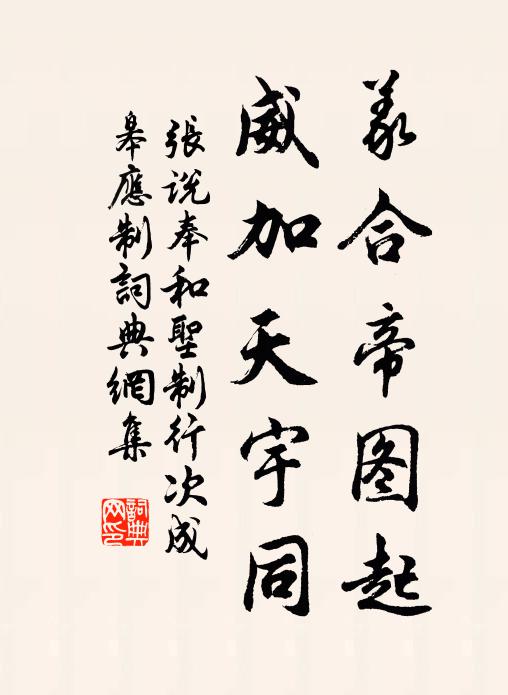 義合帝图起
威加天宇同
張说奉和聖制行次成
皋應制詞典網集
詞典
网印